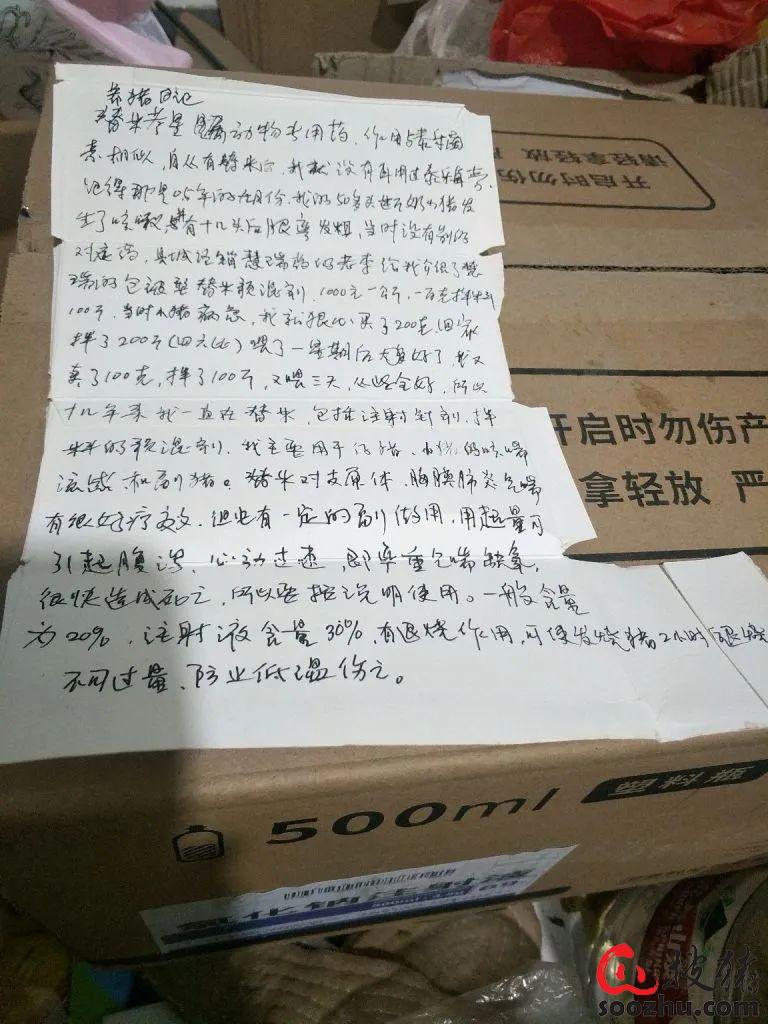 养猪日记
替米考星属动物专用药，作用与泰乐菌
素相似，自从有替米后，我就没有再用过泰乐菌素。
记得那是05年的九月份，我的50多头断奶小猪发
生了咳嗽，其有十几头后腿弯发粗，当时没有别的
对症药，县城经销慧瑞药的老李给我介绍了慧
瑞的包被型替米预混剂，1000元一公斤，一百克拌料
100斤，当时小猪病急，我就狠心买了200克，回家
拌了200斤喂了一星期后大多好了，我又
卖了100克，拌了100斤，又喂三天，从此全好，所以
十几年来我一直在替米，包括注射针剂，拌
料的预混剂，我主要用于仔猪、小猪的咳喘
流感和副猪。替米对支原体、胸膜肺炎气喘
有很好疗效，但也有一定的副做用，用超量可
引起腹泻，心动过速，即率重气喘缺氧，
很快造成死亡，所以要按说明使用。一般含量
为20%，注射液含量30%，有退烧作用，可使发烧猪2小时退烧
不可过量，防止低温伤亡。
开启时勿伤
请轻拿轻放
开启时勿伤产
拿轻放 严
500ml 塑料瓶
氯化钠注射液
搜猪
soozhu.com